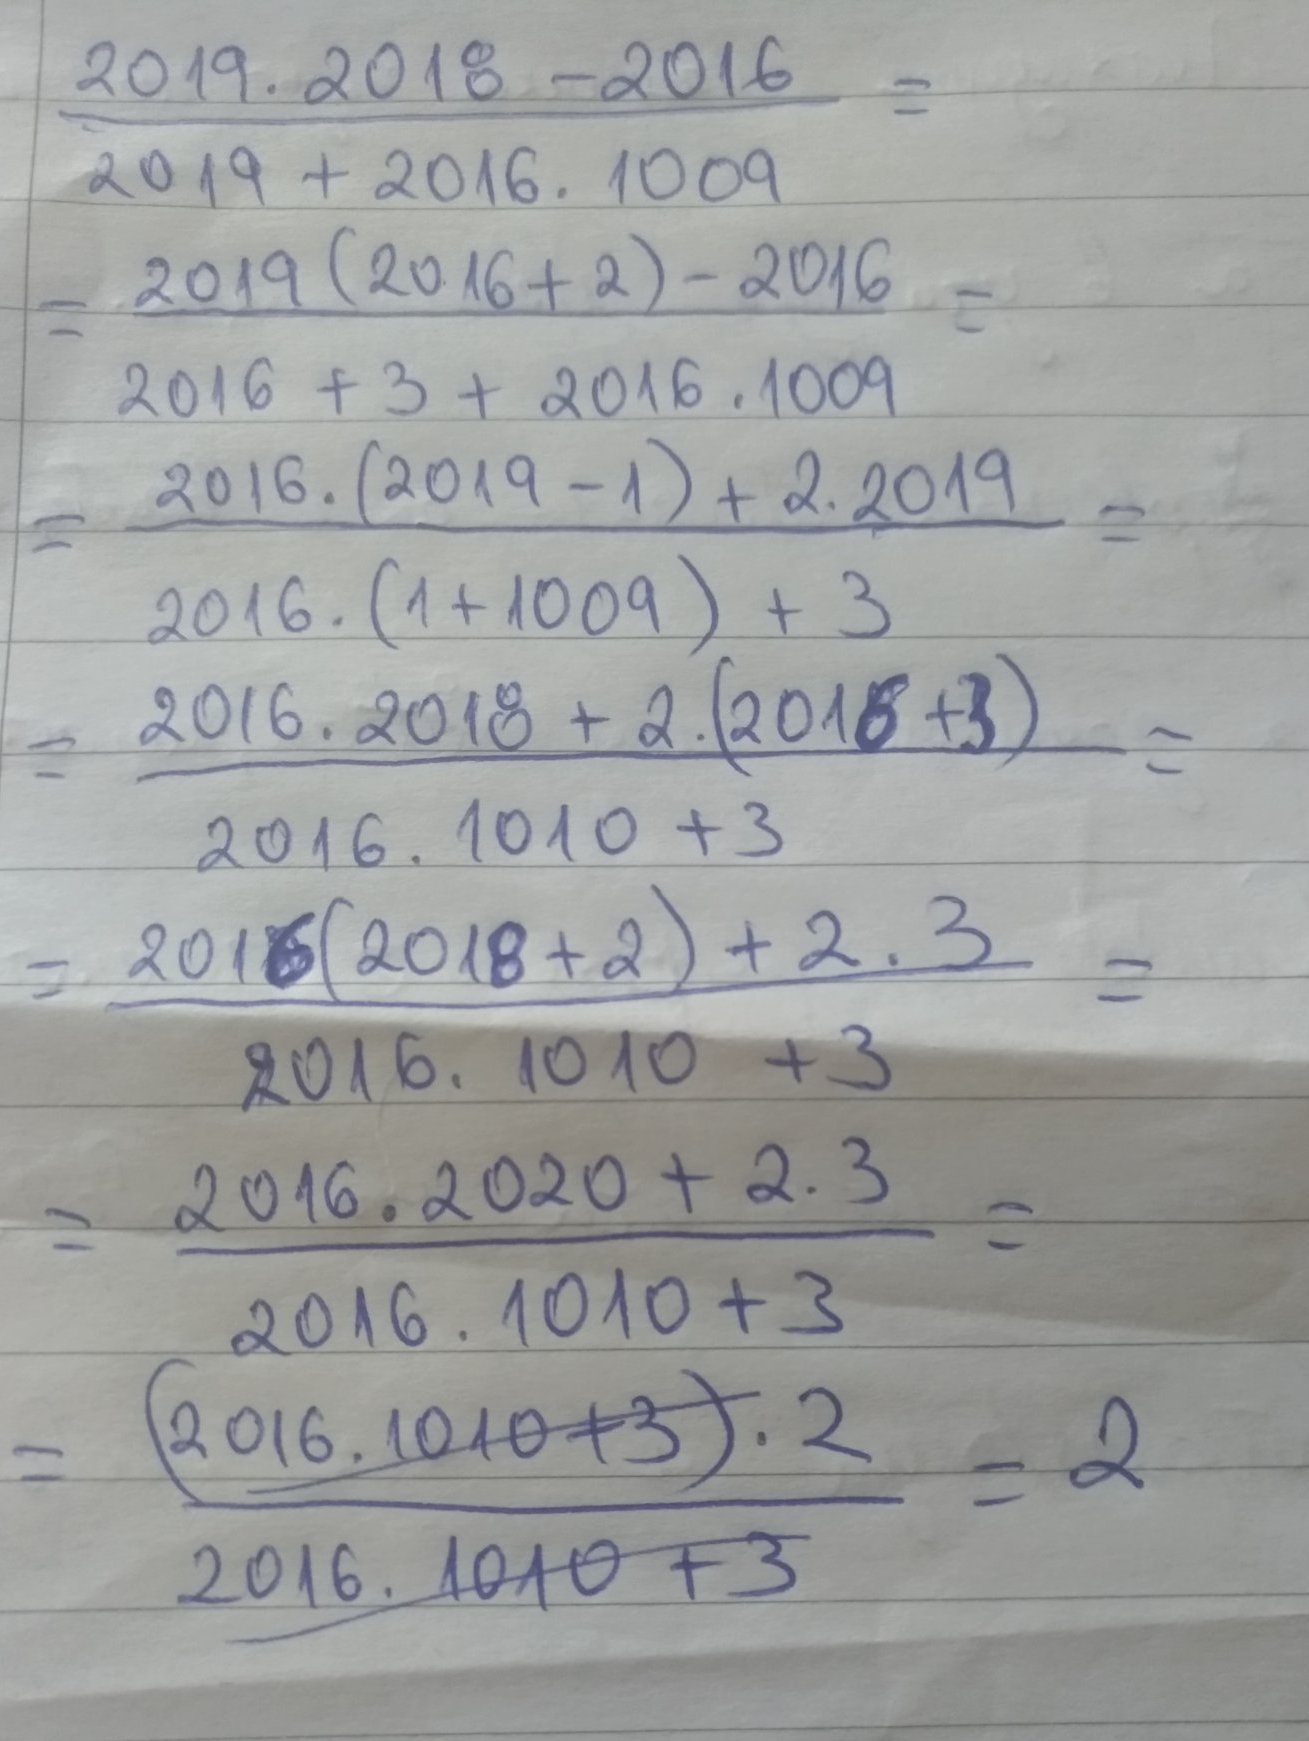 2019. 2018 - 2016 =
2019 + 2016. 1009
= 2019 (2016 + 2) - 2016 =
2016 + 3 + 2016 . 1009
= 2016. (2019 - 1) + 2. 2019 =
2016. (1 + 1009) + 3
= 2016. 2018 + 2. (2016 + 3) =
2016. 1010 + 3
= 2016 (2018 + 2) + 2 . 3 =
2016. 1010 + 3
= 2016. 2020 + 2. 3 =
2016. 1010 + 3
= (2016. 1010 + 3) . 2 = 2
2016. 1010 + 3